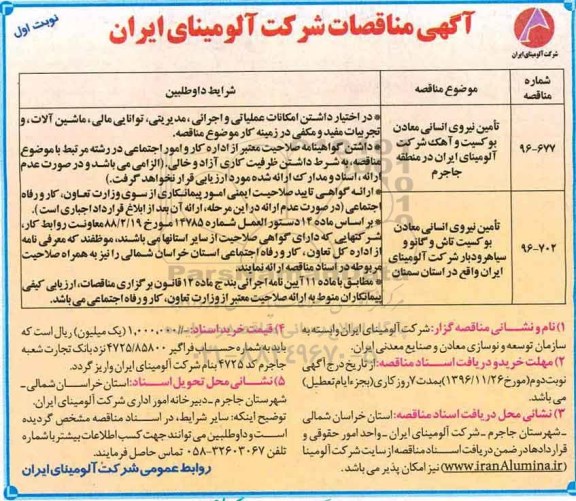 آگهی مناقصات شرکت آلومینای ایران
نوبت اول
شرکت آلومینای ایران
شماره مناقصه
موضوع مناقصه
شرایط داوطلبین
۹۶-۶۷۷
تأمین نیروی انسانی معادن
بوکسیت و آهک شرکت
آلومینای ایران در منطقه
جاجرم
۹۶-۷۰۲
تأمین نیروی انسانی معادن
بوکسیت تاش و گانو و
سیاهرودبار شرکت آلومینای
ایران واقع در استان سمنان
* در اختیار داشتن امکانات عملیاتی و اجرائی، مدیریتی، توانایی مالی، ماشین آلات، و
تجربیات مفید و مکفی در زمینه کار موضوع مناقصه.
* داشتن گواهینامه صلاحیت معتبر از اداره کار و امور اجتماعی در رشته مرتبط با موضوع
مناقصه به شرط داشتن ظرفیت کاری آزاد و خالی. (الزامی می باشد و در صورت عدم
ارائه، اسناد و مدارک ارائه شده مورد ارزیابی قرار نخواهد گرفت.)
* ارائه گواهی تایید صلاحیت ایمنی امور پیمانکاری از سوی وزارت تعاون، کار و رفاه
اجتماعی (در صورت عدم ارائه در این مرحله، ارائه آن بعد از ابلاغ قرارداد اجباری است).
* بر اساس ماده ۱۲ دستور العمل شماره ۱۴۷۸۵ مورخ ۸۸/۲/۱۹ معاونت روابط کار،
شرکتهایی که دارای گواهی صلاحیت از سایر استانها می باشند، موظفند که معرفی نامه
از اداره کل تعاون، کار و رفاه اجتماعی استان خراسان شمالی را نیز به همراه صلاحیت
مربوطه در اسناد مناقصه ارائه نمایند.
* مطابق با ماده ۱۱ آیین نامه اجرائی بند ج ماده ۱۲ قانون برگزاری مناقصات، ارزیابی کیفی
پیمانکاران منوط به ارائه صلاحیت معتبر از وزارت تعاون، کار و رفاه اجتماعی می باشد.
۱) نام و نشانی مناقصه گزار: شرکت آلومینای ایران وابسته به
سازمان توسعه و نوسازی معادن و صنایع معدنی ایران.
۲) مهلت خرید و دریافت اسناد مناقصه: از تاریخ درج آگهی
نوبت دوم (مورخ ۱۳۹۶/۱۱/۲۶) بمدت ۷ روز کاری (بجزء ایام تعطیل)
می باشد.
۳) نشانی محل دریافت اسناد مناقصه: استان خراسان شمالی
-شهرستان جاجرم - شرکت آلومینای ایران - واحد امور حقوقی و
قراردادها در ضمن دریافت اسناد مناقصه از سایت شرکت آلومینا
(www.iranAlumina.ir) نیز امکان پذیر می باشد.
۴) قیمت خرید اسناد: -/۱,۰۰۰,۰۰۰ (یک میلیون) ریال است که
باید به شماره حساب فراگیر ۴۷۲۵/۸۵۸۰۰ نزد بانک تجارت شعبه
جاجرم کد ۴۷۲۵ بنام شرکت آلومینای ایران واریز گردد.
۵) نشانی محل تحویل اسناد: استان خراسان شمالی -
شهرستان جاجرم - دبیرخانه امور اداری شرکت آلومینای ایران.
توضیح اینکه: سایر شرایط، در اسناد مناقصه مشخص گردیده
است و داوطلبین می توانند جهت کسب اطلاعات بیشتر با شماره
تلفن ۳۲۶۰۳۰۶۷-۰۵۸ تماس حاصل فرمایند.
روابط عمومی شرکت آلومینای ایران